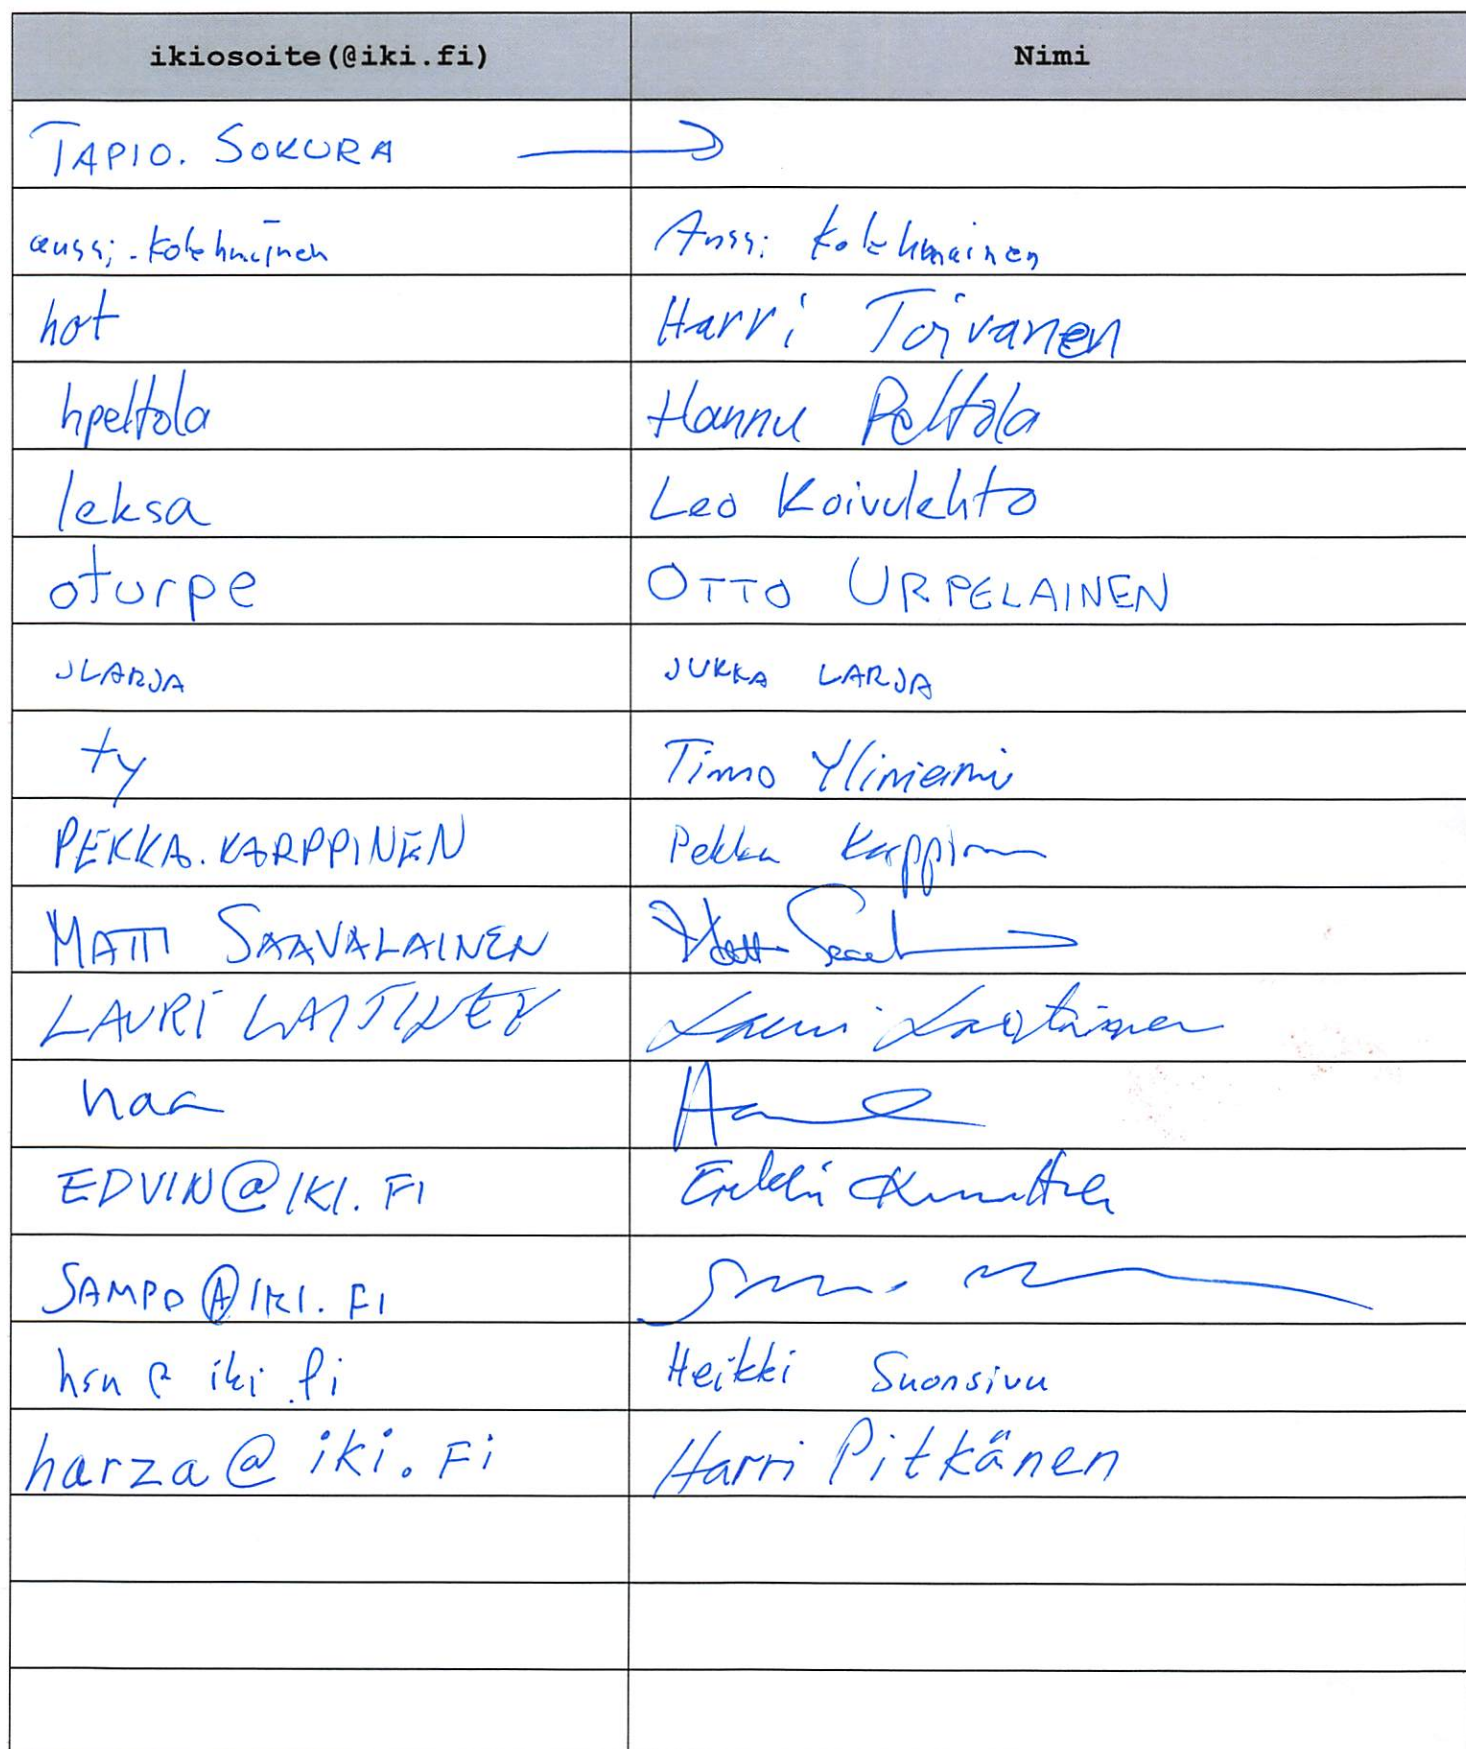 ikiosoite(@iki.fi) Nimi
TAPIO. SOKURA
anssi.kolehmainen Anssi Kolehmainen
hot Harri Toivanen
hpeltola Hannu Peltola
leksa Leo Koivulehto
oturpe OTTO URPELAINEN
JLARJA JUKKA LARJA
ty Timo Yliniemi
PEKKA.KARPPINEN Pekka Karppinen
MATTI SAAVALAINEN Matti
LAURI LAITINEN Lauri Laitinen
naa
EDVIN@IKI.FI Erkki
SAMPO@IKI.FI
hsu@iki.fi Heikki Suonsivu
harza@iki.Fi Harri Pitkänen